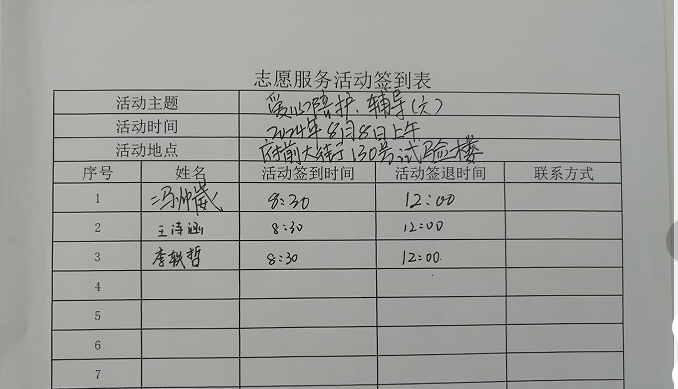 志愿服务活动签到表
活动主题 爱心陪护、辅导(六)
活动时间 2024年8月8日上午
活动地点 府前大街130号试验楼
序号 姓名 活动签到时间 活动签退时间 联系方式
1 冯帅崴 8:30 12:00
2 王诗涵 8:30 12:00
3 李轶哲 8:30 12:00
4
5
6
7